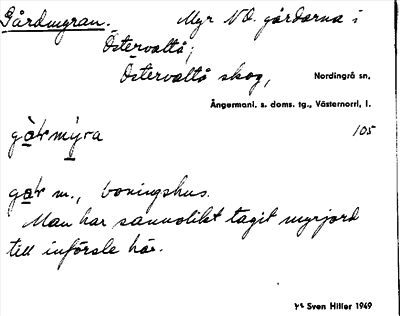 Gårdmyran. Myr NO. gårdarna i
Östervalto;
Östervalto skog, Nordingrå sn,
Ångermanl. s. doms. tg., Västernorrl. l.
105
gàrmýra
gàr m., boningshus.
Man har sannolikt tagit myrjord
till införsle här.
Sven Hiller 1949